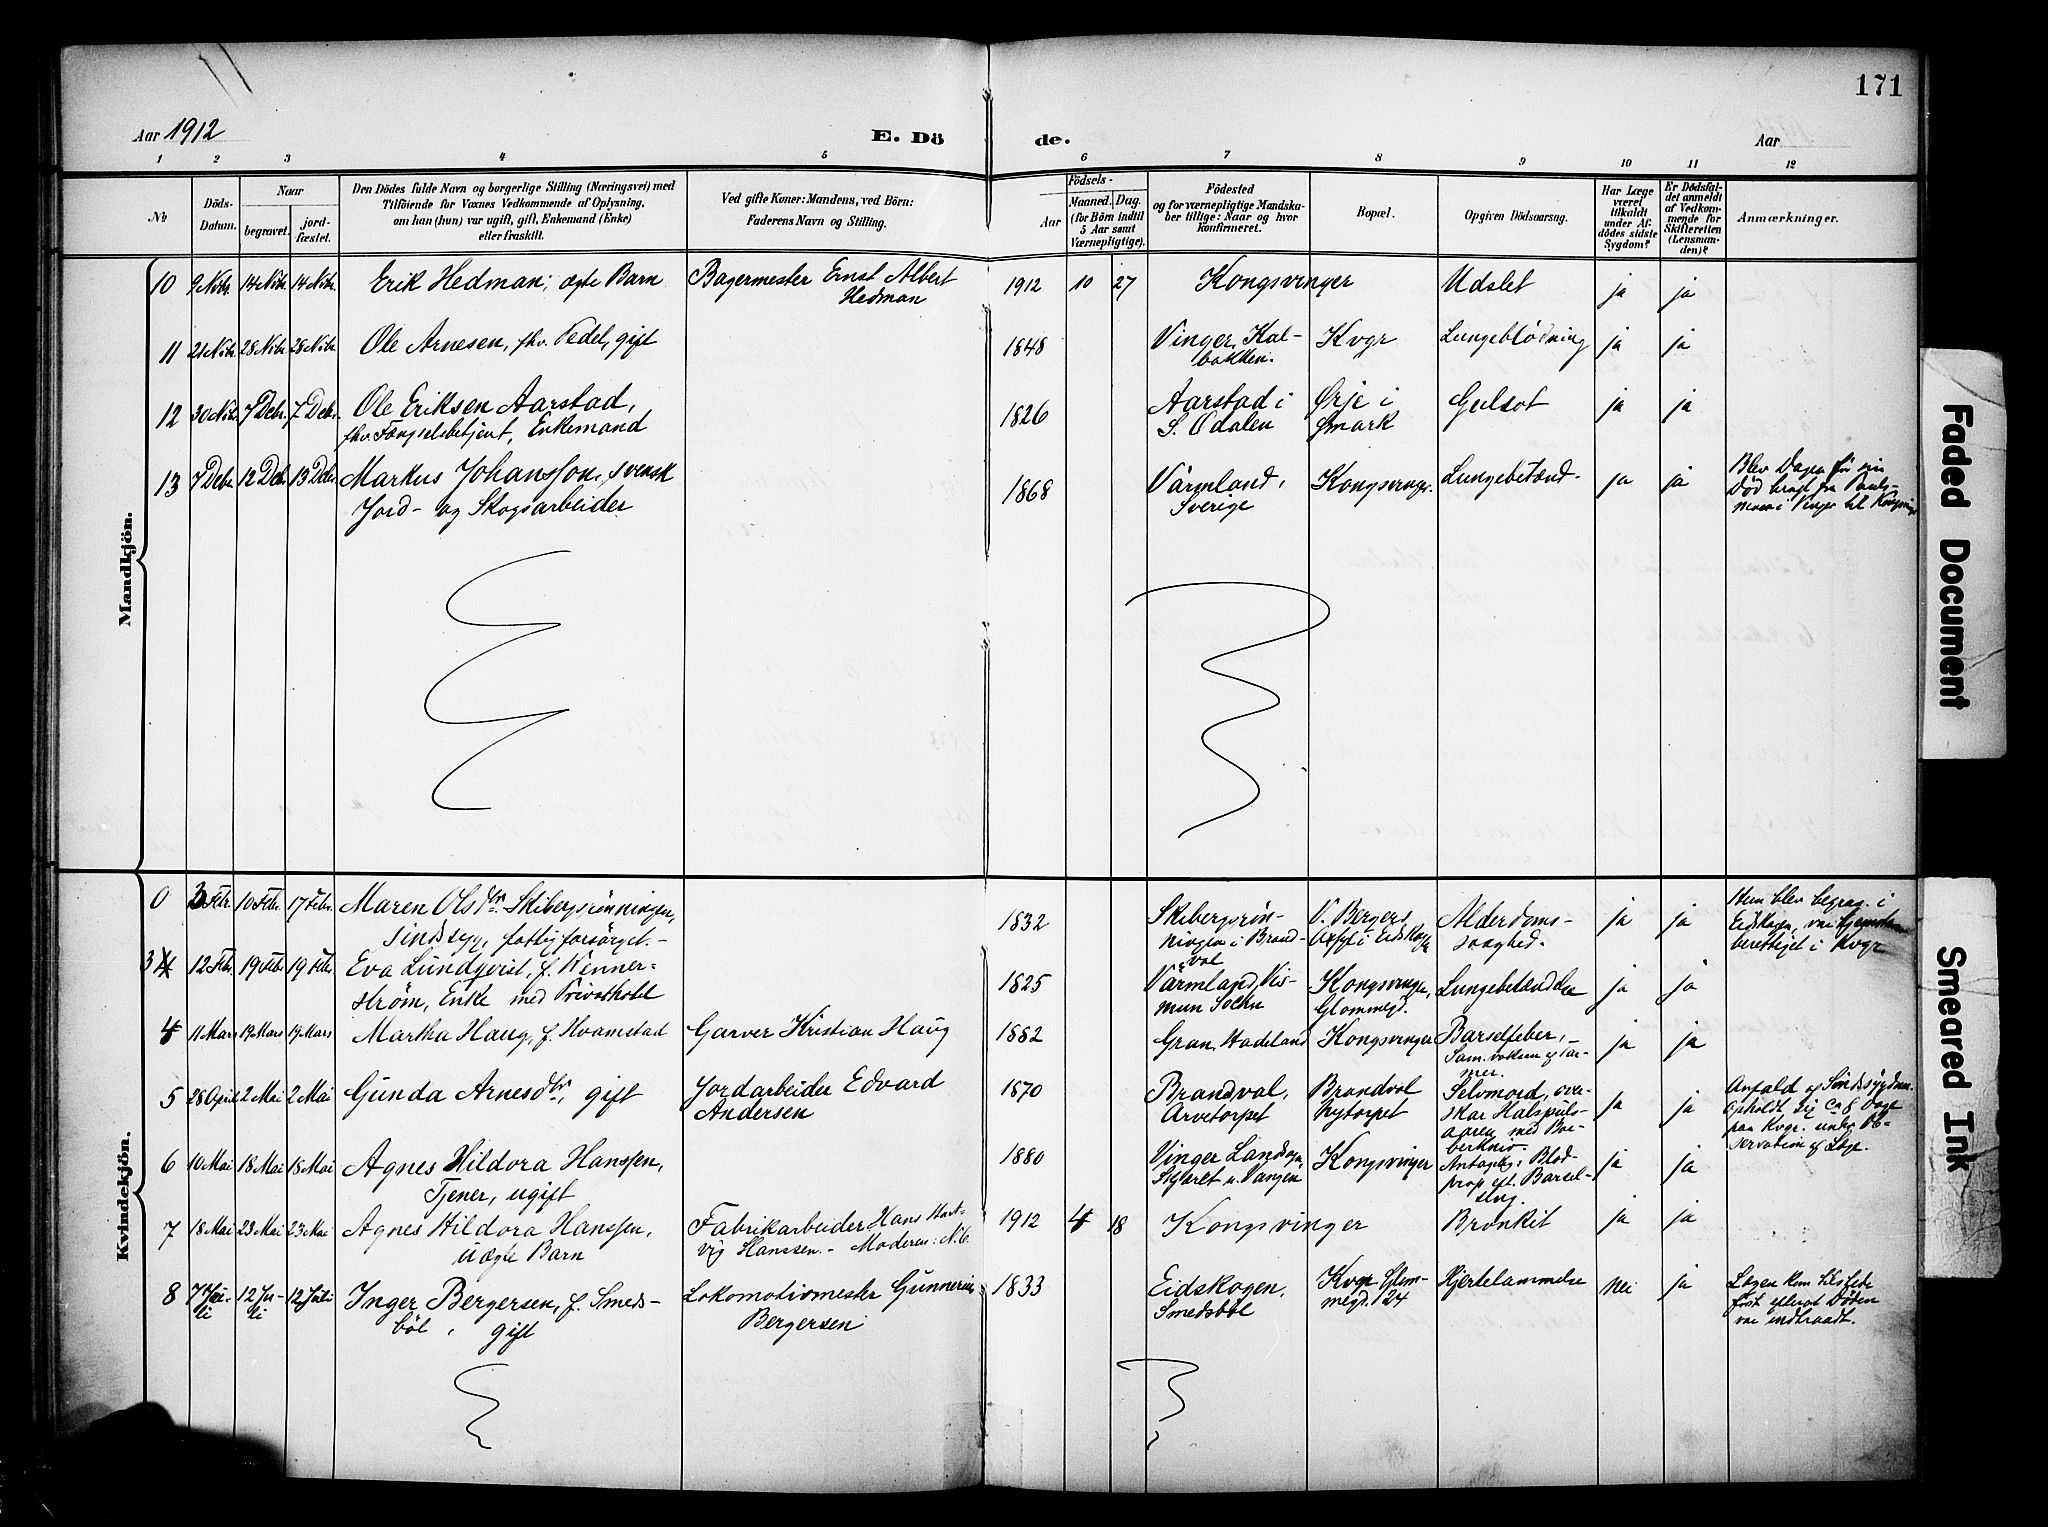 171
Aar 1912
E. Dö
de.
Aar
1 2 3 4 5 6 7 8 9 10 11 12
No
Döds-
Datum.
Naar
begravet.
jord-
fæstet.
Den Dödes fulde Navn og borgerlige Stilling (Næringsvei) med
Tilföiende for Voxnes Vedkommende af Oplysning,
om han (hun) var ugift, gift, Enkemand (Enke)
eller fraskilt.
Ved gifte Koner: Mandens, ved Börn:
Faderens Navn og Stilling.
Födsels-
Aar
Maaned. Dag.
(for Börn indtil
5 Aar samt
Værnepligtige).
Födested
og for værnepligtige Mandska-
ber tillige: Naar og hvor
konfirmeret.
Bopæl.
Opgiven Dödsaarsag.
Har Læge
været
tilkaldt
under Af-
dödes sidste
Sygdom?
Er Dödsfal-
det anmeldt
af Vedkom-
mende for
Skifteretten
(Lensman-
den)?
Anmærkninger.
Mandkjön.
10 9 Nvbr. 14 Nvbr. 14 Nvbr. Erik Hedman; ægte Barn Bagermester Ernst Albert
Hedman
1912 10 27 Kongsvinger Udslet ja ja
11 21 Nvbr. 28 Nvbr. 28 Nvbr. Ole Arnesen, fhv. Pedel, gift
1848 Vinger, Kal-
bakken. Kvgr Lungeblødning ja ja
12 30 Nvbr. 7 Debr. 7 Debr. Ole Eriksen Aarstad,
fhv. Fængselsbetjent, Enkemand
1826 Aarstad i
S. Odalen Ørje i
Ømark Gulsot ja ja
13 7 Debr. 12 Debr. 13 Debr. Markus Johansson, svensk
Jord- og Skogsarbeider
1868 Värmland,
Sverige Kongsvingr. Lungebetænd- ja ja
Blev Dagen før sin
Død bragt fra
i Vinger til
Kvindekjön.
0 3 Febr. 10 Febr. 17 Febr. Maren Olsdtr. Skibergsrønningen,
sindssyg, fattigforsørget.
1832 Skibergsrøn-
ningen i Brand-
val V. Bergers
i Eidskogen Alderdoms-
svaghed. ja ja
Hun blev begrav. i
Eidskogen, var hjemsta
berettiget i Kvgr
3 4 12 Febr. 19 Febr. 19 Febr. Eva Lundqvist, f. Wenner-
strøm, Enke med Privathotel
1825 Värmland, Vis-
num Sokn Kongsvinger,
Glommegd. Lungebetændelse ja ja
4 11 Mars 19 Mars 19 Mars Martha Haug, f. Hvamstad Garver Kristian Haug
1882 Gran, Hadeland Kongsvinger Barselfeber, -
Sam. voksen af Tar-
mer. ja ja
5 28 April 2 Mai 2 Mai Gunda Arnesdtr., gift Jordarbeider Edvard
Andersen
1870 Brandval,
Arvetorpet Brandval
Nytorpet Selvmord, over-
skar Halspuls-
aaren med Bar-
berkniv. ja ja
Anfald af Sindssygdom.
Opholdt sig ca 8 Dage
paa Kvgr. under Ob-
servation af Læge.
6 10 Mai 18 Mai 18 Mai Agnes Hildora Hanssen,
Tjener, ugift
1880 Vinger Landsogn,
u. Vangen Kongsvinger Antagelig: Blod-
prop eft. Barsel-
seng. ja ja
7 18 Mai 23 Mai 23 Mai Agnes Hildora Hanssen,
uægte Barn Fabrikarbeider Hans Hart-
vig Hanssen. - Moderen: N. 6.
1912 4 18 Kongsvinger Bronkit ja ja
8 7 Ju-
li 12 Ju-
li 12 Juli Inger Bergersen, f. Smeds-
böl, gift Lokomotivmester Gunnerius
Bergersen
1833 Eidskogen,
Smedsböl Kvgr Glom-
megd. 24 Hjertelammelse nei ja
Lægen kom tilstede
først efterat Døden
var indtraadt.
Faded Document
Smeared Ink